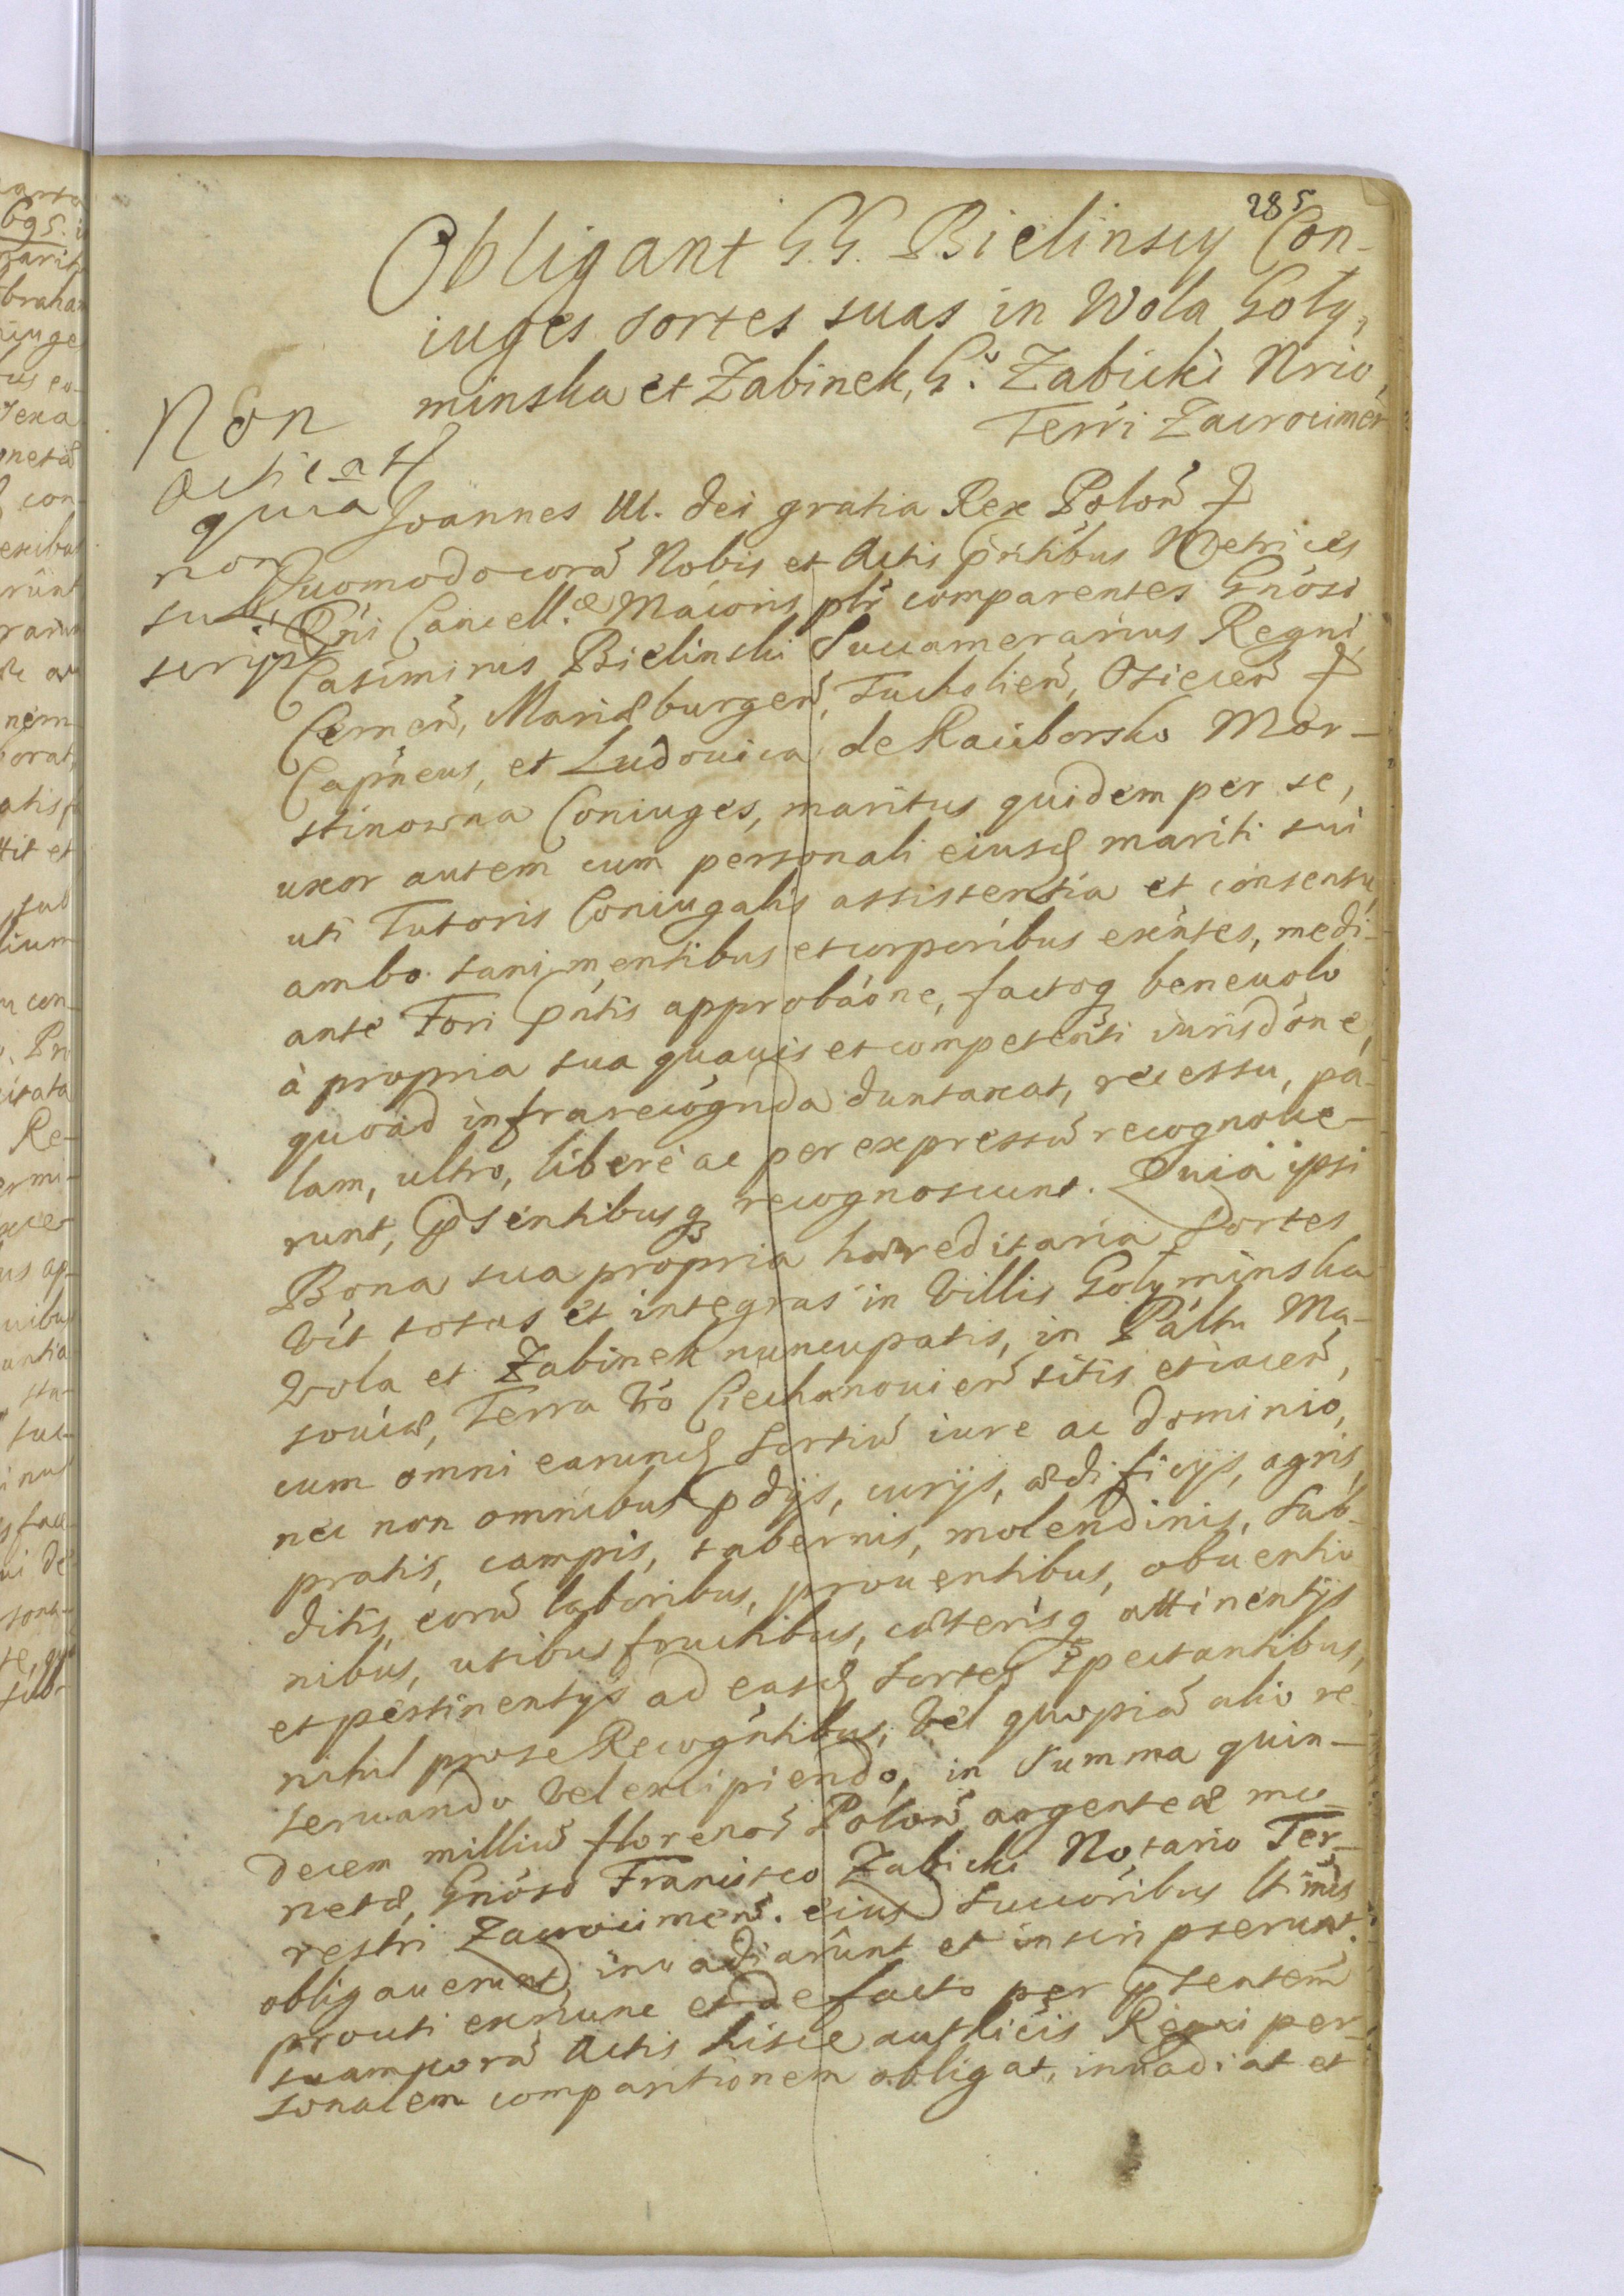 285
Obligant G.G. Bielinscy Con-
iuges sortes suas in Wola Goly,
minska et Zabinek, G.º Zabicki Nrio,
Terri Zacrocimen
Non
acticat
quia
non
sub
script
Joannes III. Dei gratia Rex Polon̄ &
Quomodo corā Nobis et Actis pn̄tibus Metrices
Rn̄i Cancell.æ Maioris plr̄ comparentes Gnosi
Casimirus Bielinski Succamerarius Regni,
Cernen̄, Mariæburgen̄, Tucholien̄, Osiecen̄ &
Capn̄eus, et Ludouica de Raciborsko Mor-
stinowna Coniuges, maritus quidem per se,
uxor autem cum personali eiusd mariti sui
uti Tutoris Coniugalis assistentia et consensu,
ambo sani mentibus et corporibus exn̄tes, medi-
ante Fori pn̄tis approbaōne, factoq beneuolo
à propria sua quauis et competenti iurisdōne,
quoad infra recogn̄da duntaxat, recessu, pa-
lam, ultro, liberè ac per expressū recognoue-
runt, psentibusq recognoscunt. Quia ipsi
Bona sua propria hæreditaria Sortes
vit totas et integras in Villis Golyminska
Wola et Zabinek nuncupatis, in Palтu Ma-
souiæ, Terra vō Ciechanouien̄ sitis et iacen̄,
cum omni earund Sortiū iure ac dominio,
nec non omnibus pdijs, curijs, ædificijs, agris,
pratis, campis, tabernis, molendinis, Sub-
ditis, eorū laboribus, prouentibus, obuentio
nibus, usibus fructibus, cæterisq attinentijs
et pertinentijs ad easd Sortes spectantibus,
nihil pro se Recogn̄tibus, vel quopiā alio re-
seruando vel excipiendo, in Summa quin-
decem milliū florenor̄ Polon̄ argenteæ mo-
netæ, Gnoso Francisco Zabicki Notario Ter-
restri Zacrocimen̄. eiusq Succoribus ltimis
obligauerunt, inuadiarunt et inscripserunt.
prouti exnunc et de facto per psentem
suam corā Actis hisce authēcis Regni per-
sonalem comparitionem obligat, inuadiat et